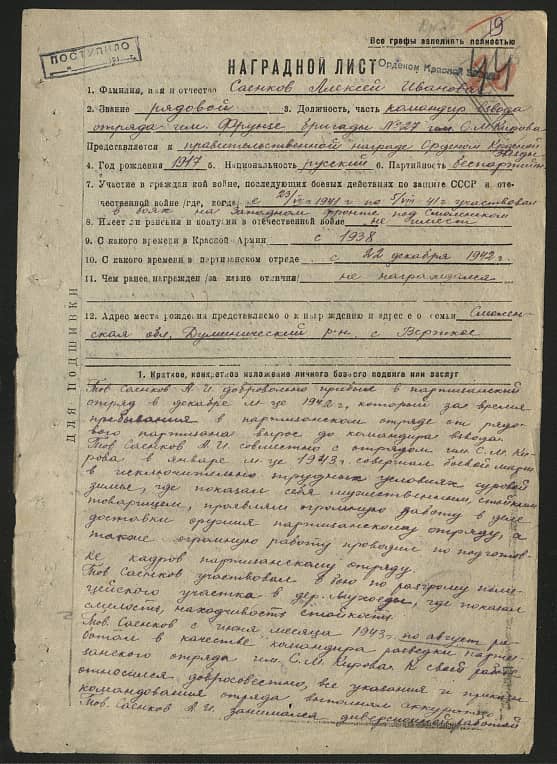 19
Все графы заполнять полностью
ПОСТУПИЛО
44
НАГРАДНОЙ ЛИСТ
Орденом Красной
1. Фамилия, имя и отчество Саенков Алексей Иванович
2. Звание рядовой 3. Должность, часть командир взвода
отряда им. Фрунзе бригады №27 им. С.М. Кирова
Представляется к правительственной награде Орденом Красной
Звезды
4. Год рождения 1917 5. Национальность русский 6. Партийность беспартийн
7. Участие в гражданской войне, последующих боевых действиях по защите СССР и оте-
чественной войне /где, когда/ с 23/ 1941 г по 5/ 41 г участвовал
в боях на Западном фронте под Смоленском
8. Имеет ли ранения и контузии в отечественной войне не имеет
9. С какого времени в Красной Армии с 1938
10. С какого времени в партизанском отряде с 22 декабря 1942 г.
11. Чем ранее награжден /за какие отличия/ не награждался
12. Адрес места рождения представляемого к награждению и адрес его семьи Смолен-
ская обл. Думиничский р-н, с
ДЛЯ ПОДШИВКИ
1. Краткое, конкретное изложение личного боевого подвига или заслуг
Тов Саенков А.И добровольно прибыл в партизанский
отряд в декабре м-це 1942 г, который за время
пребывания в партизанском отряде от рядо-
вого партизана вырос до командира взвода.
Тов Саенков А.И совместно с отрядом им. С.М. Ки-
рова в январе м-це 1943 г. совершал боевой марш
в исключительно трудных условиях суровой
зимы, где показал себя мужественным, стойким
товарищем, проявлял огромную работу в деле
доставки оружия партизанскому отряду, а
также огромную работу проводил по подготов-
ке кадров партизанскому отряду.
Тов Саенков участвовал в бою по разгрому поли-
цейского участка в дер. , где показал
смелость, находчивость стойкость.
Тов. Саенков с июня месяца 1943 г. по август ра-
ботал в качестве командира разведки парти-
занского отряда им. С.М. Кирова. К своей работе
относился добросовестно, все указания и приказы
командования отряда выполнял аккуратно
Тов. Саенков А.И занимался диверсионной работой